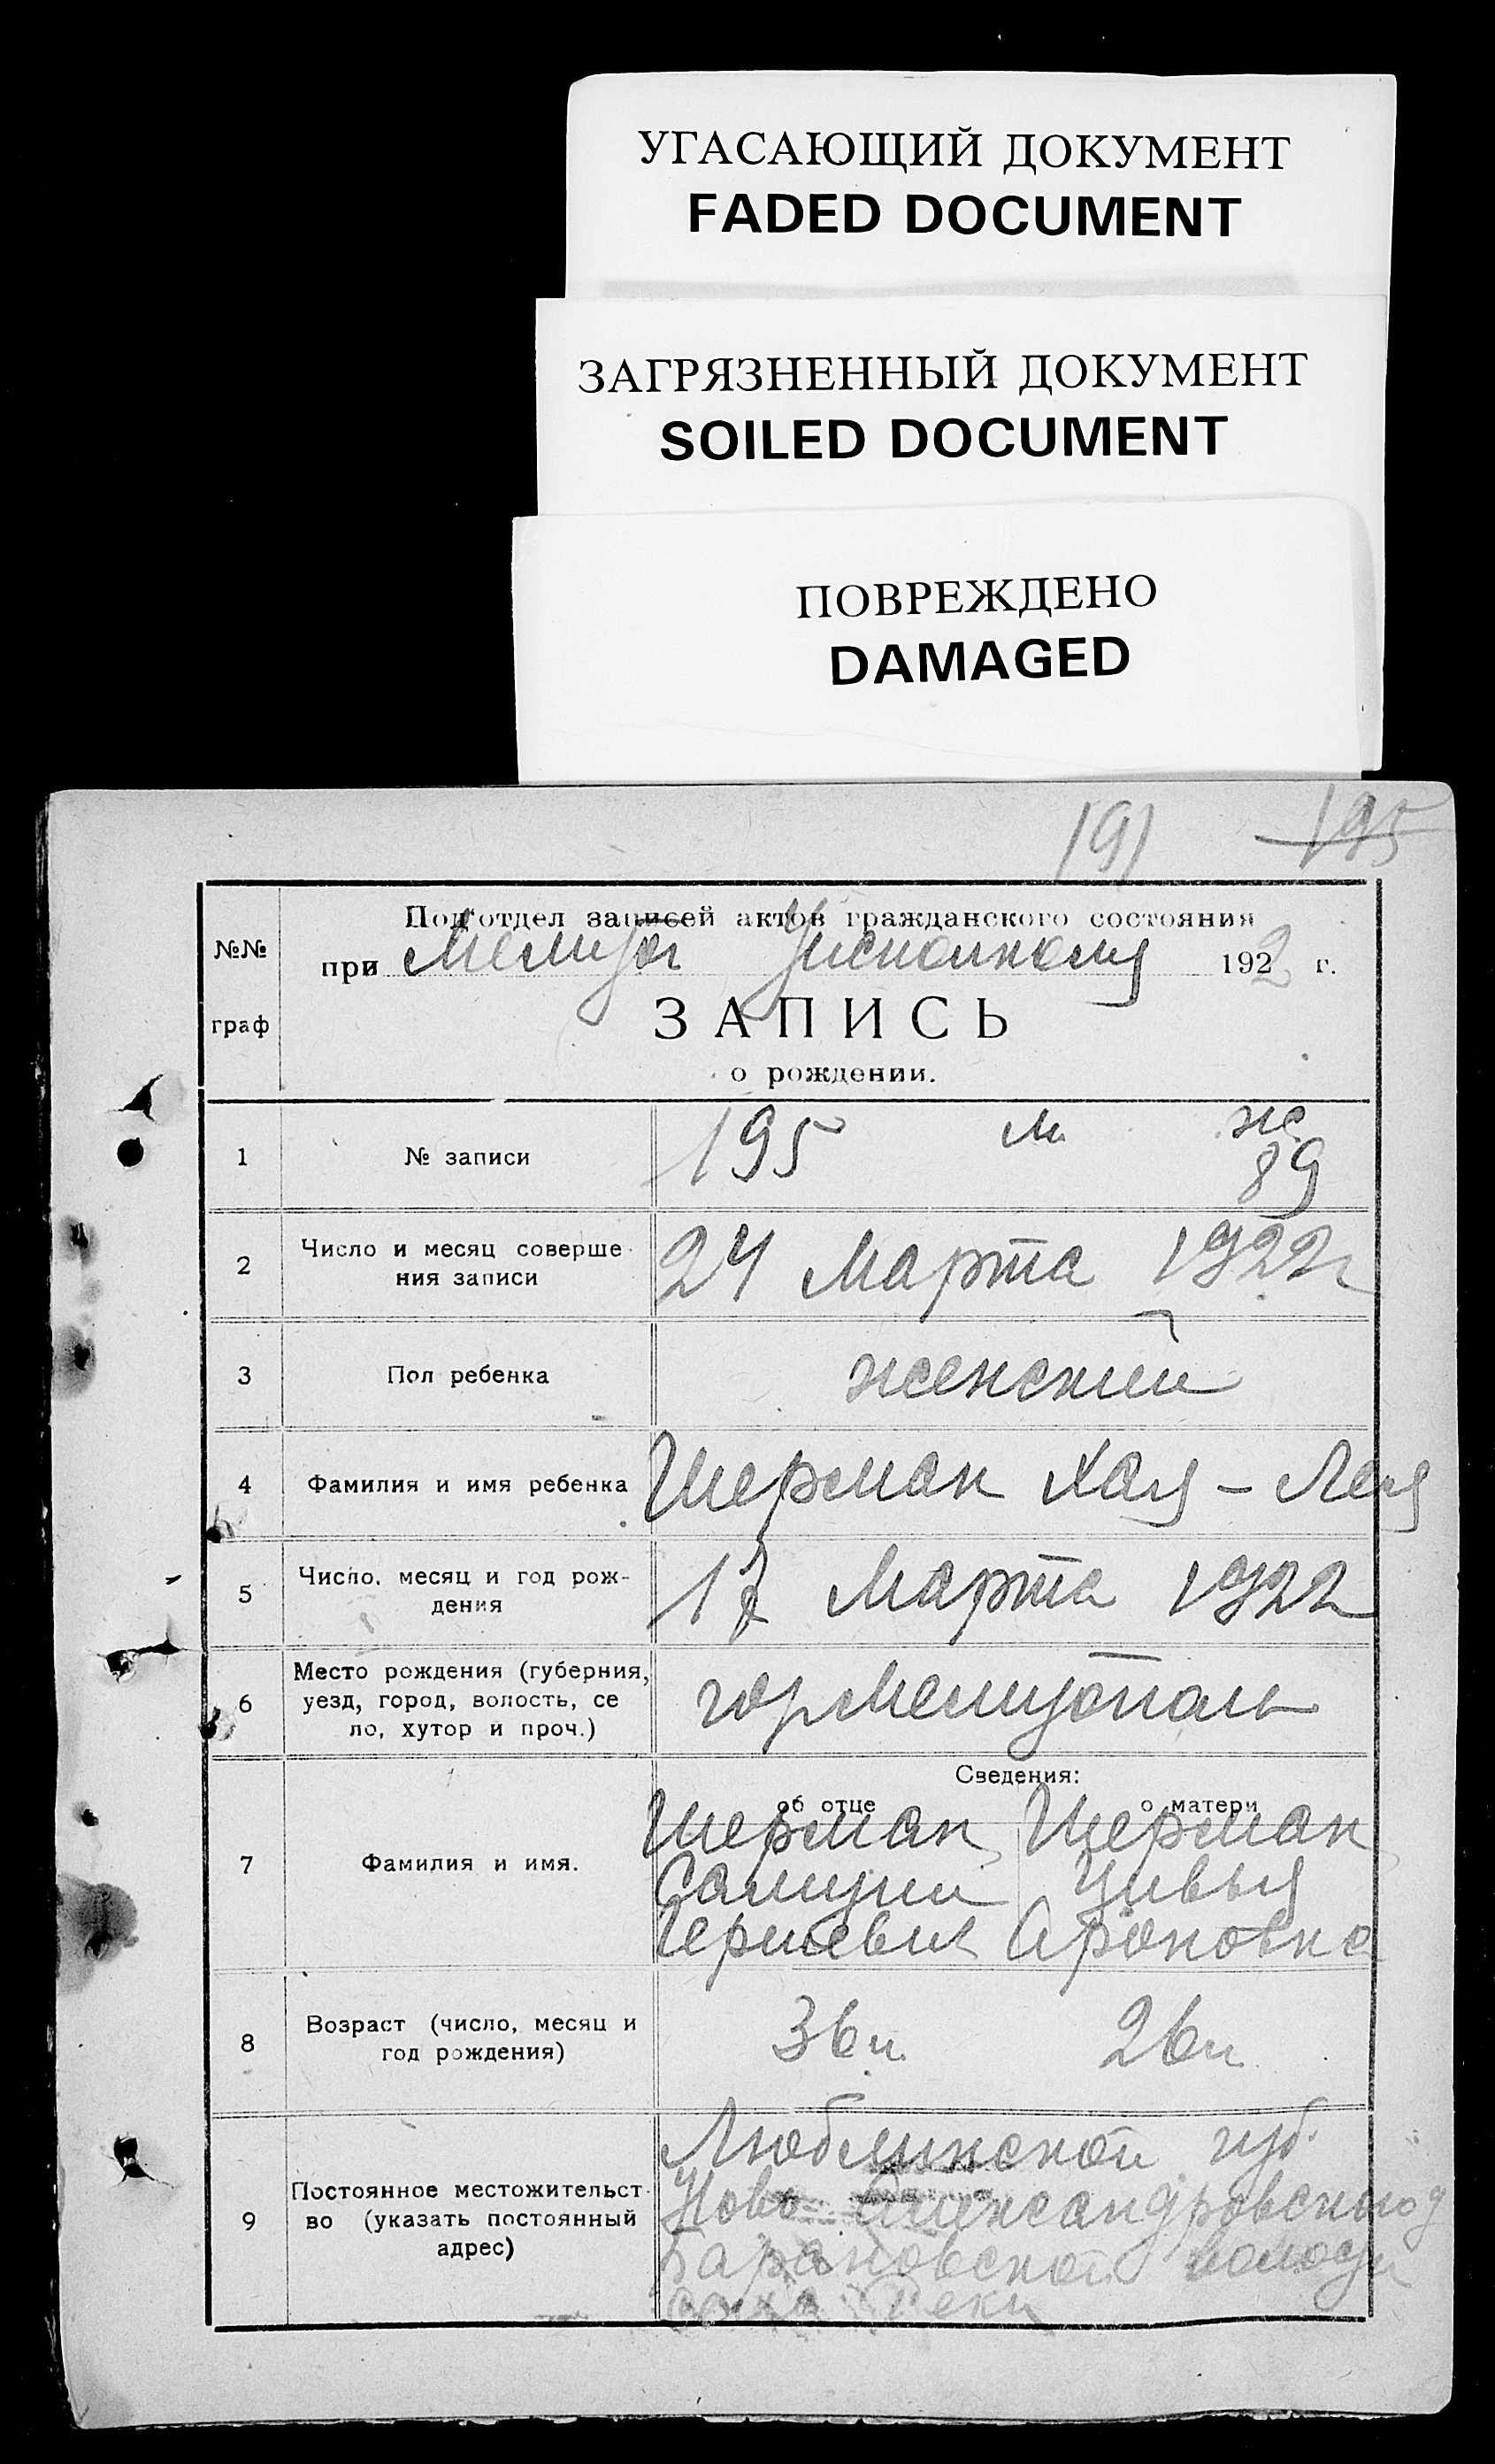 УГАСАЮЩИЙ ДОКУМЕНТ
FADED DOCUMENT
ЗАГРЯЗНЕННЫЙ ДОКУМЕНТ
SOILED DOCUMENT
ПОВРЕЖДЕНО
DAMAGED
191 195
№№ граф
Под'отдел записей актов гражданского состояния
при Мелитоп Уисполкома 1922 г.
ЗАПИСЬ
о рождении.
1 № записи 195 м. же 89
2 Число и месяц соверше
ния записи 24 Марта 1922 г
3 Пол ребенка женский
4 Фамилия и имя ребенка Шерман Хая - Лея
5 Число, месяц и год рож-
дения 17 Марта 1922
6 Место рождения (губерния,
уезд, город, волость, се
ло, хутор и проч.) гор Мелитополь
Сведения:
об отце о матери
7 Фамилия и имя. Шерман Шерман
Самуил Цивья
Гершевич Ароновна
8 Возраст (число, месяц и
год рождения) 36 л 26 л
9 Постоянное местожительст
во (указать постоянный
адрес) Люблинской губ.
Ново Александровского
Барановской волости